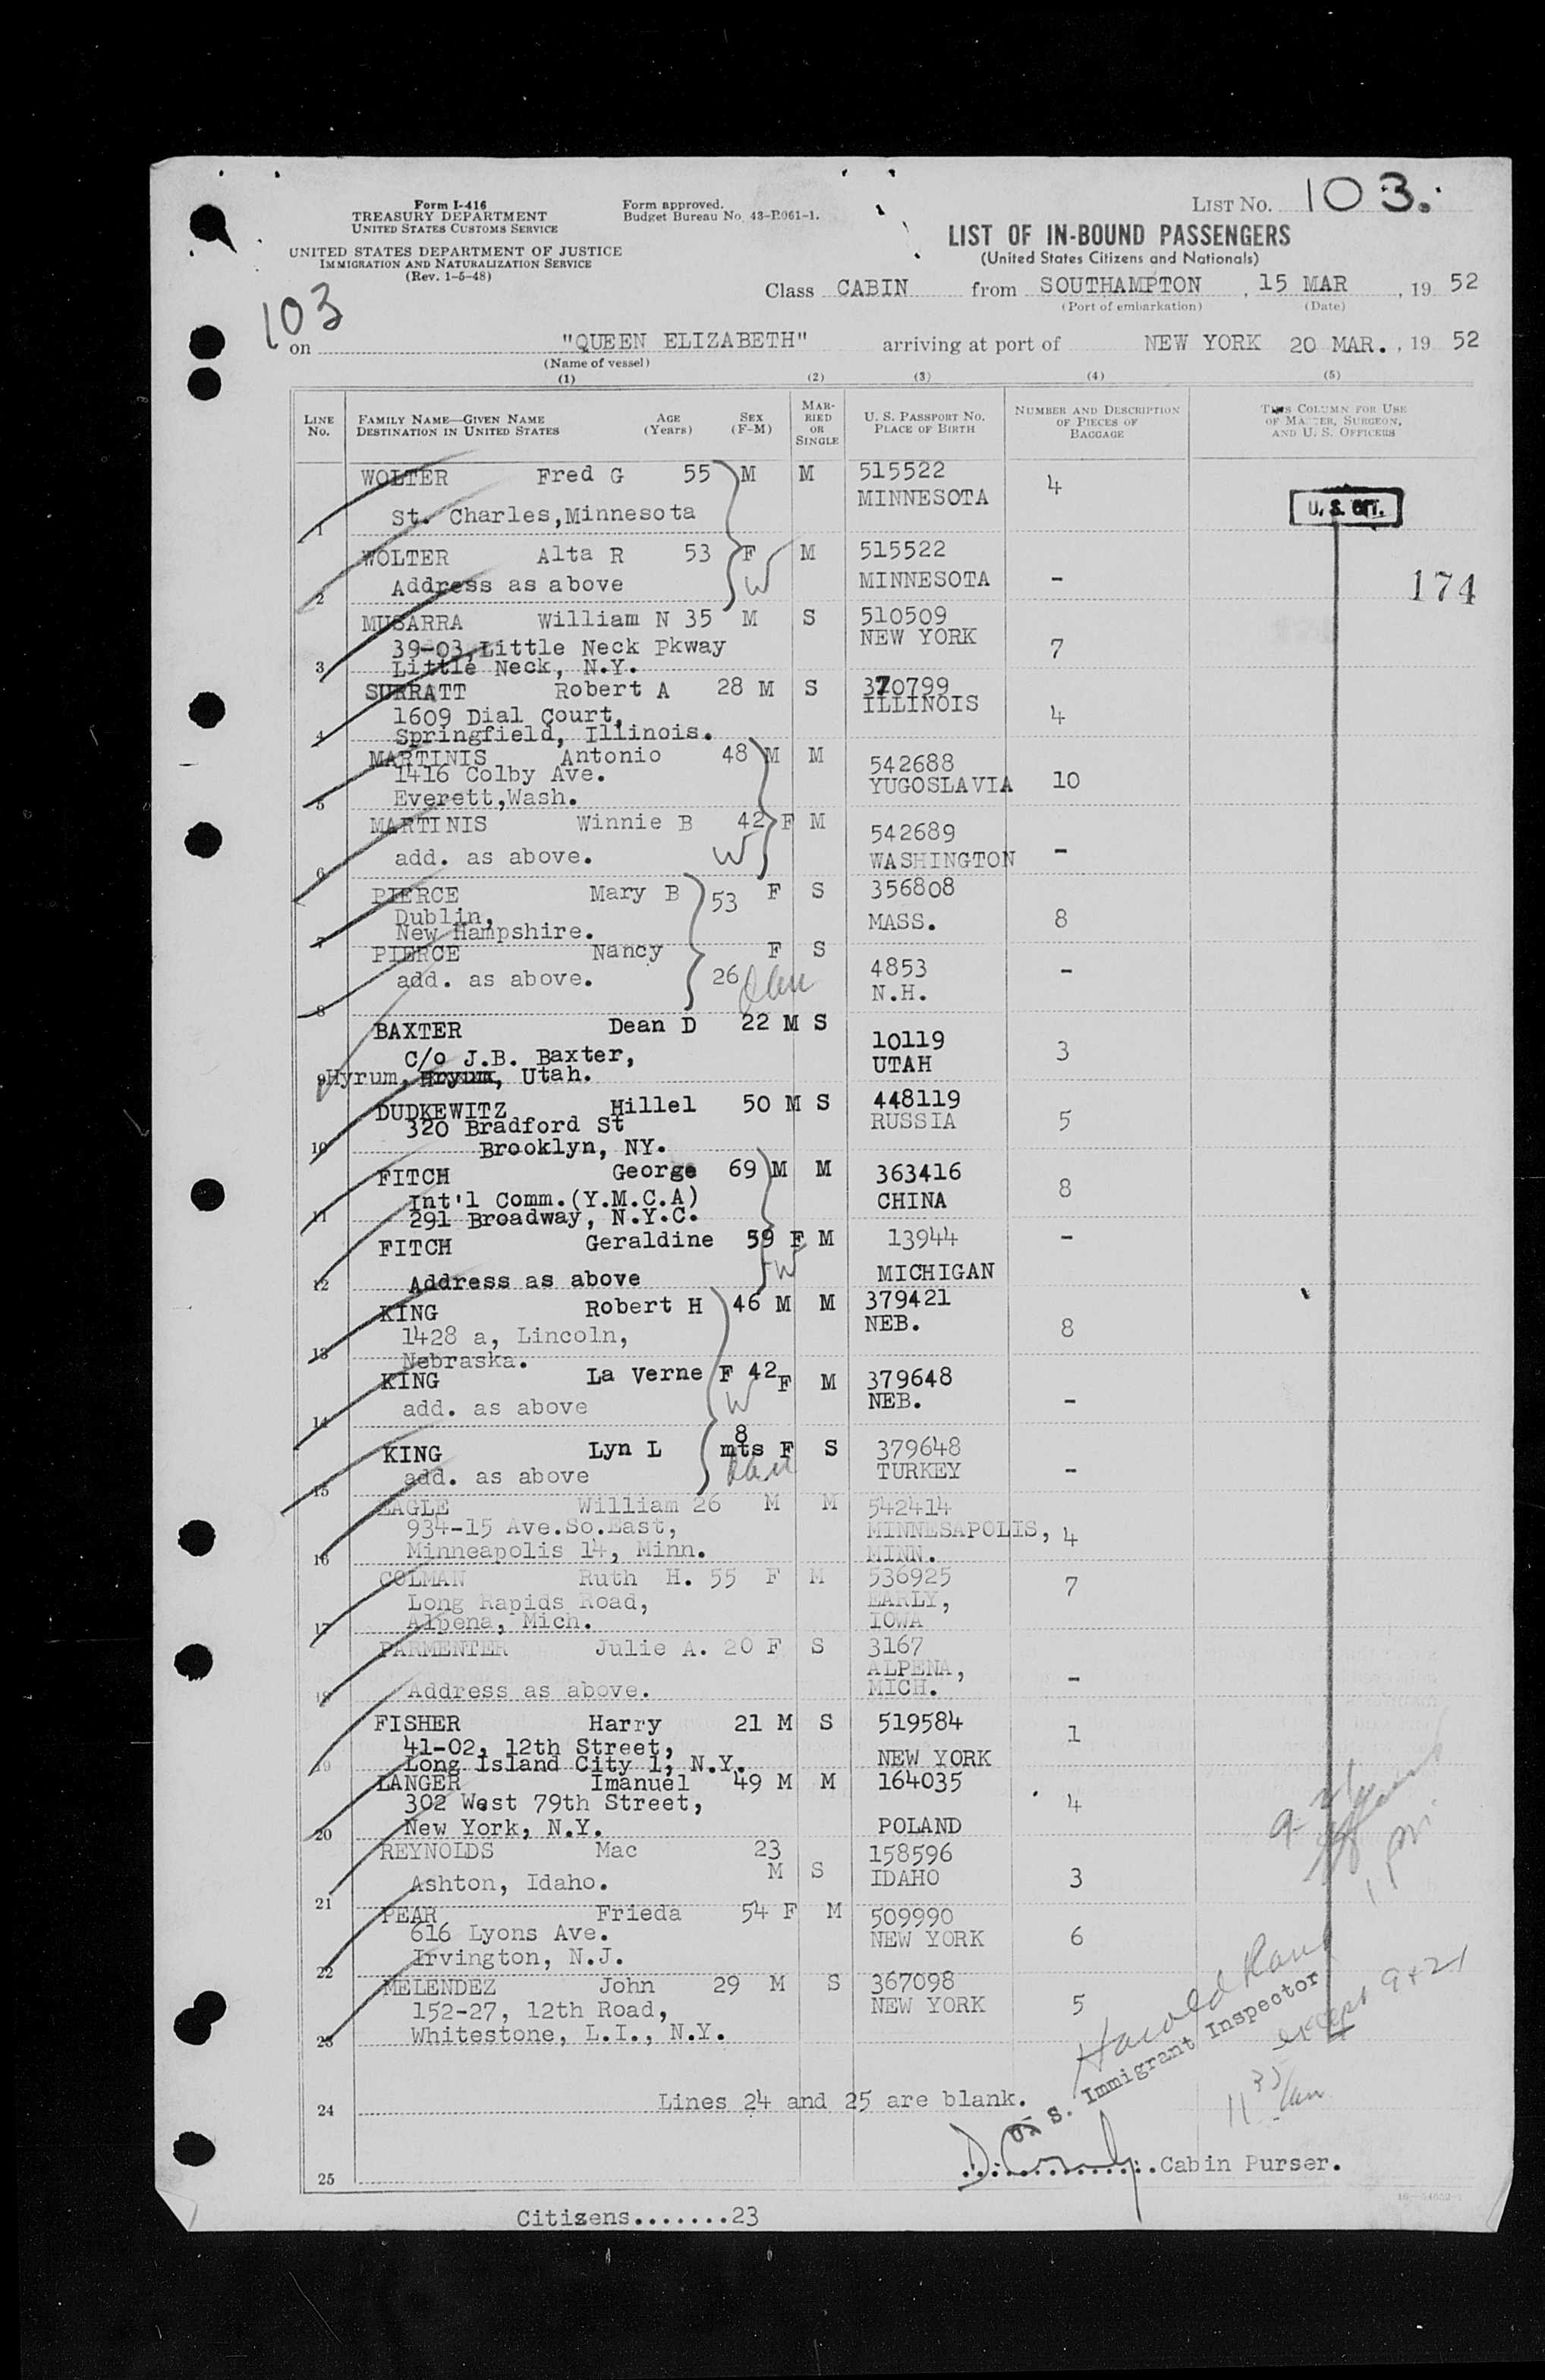 Form I-416
TREASURY DEPARTMENT
UNITED STATES CUSTOMS SERVICE
UNITED STATES DEPARTMENT OF JUSTICE
IMMIGRATION AND NATURALIZATION SERVICE
(Rev. 1-5-48)
Form approved.
Budget Bureau No. 43-R061-1.
LIST NO. 103.
LIST OF IN-BOUND PASSENGERS
(United States Citizens and Nationals)
103
Class CABIN from SOUTHAMPTON, 15 MAR, 19 52
(Port of embarkation) (Date)
on "QUEEN ELIZABETH" arriving at port of NEW YORK 20 MAR., 19 52
(Name of vessel)
(1) (2) (3) (4) (5)
LINE No. FAMILY NAME—GIVEN NAME DESTINATION IN UNITED STATES AGE (Years) SEX (F-M) MARRIED OR SINGLE U. S. PASSPORT NO. PLACE OF BIRTH NUMBER AND DESCRIPTION OF PIECES OF BAGGAGE THIS COLUMN FOR USE OF MASTER, SURGEON, AND U. S. OFFICERS
WOLTER Fred G 55 M M 515522 4
MINNESOTA
U. S. CIT.
1 St. Charles,Minnesota
WOLTER Alta R 53 F M 515522
2 Address as above W MINNESOTA -
174
MUSARRA William N 35 M S 510509
39-03,Little Neck Pkway NEW YORK 7
3 Little Neck, N.Y.
SURRATT Robert A 28 M S 370799
1609 Dial Court, ILLINOIS 4
4 Springfield, Illinois.
MARTINIS Antonio 48 M M 542688
1416 Colby Ave. YUGOSLAVIA 10
5 Everett,Wash.
MARTINIS Winnie B 42 F M 542689
6 add. as above. W WASHINGTON -
PIERCE Mary B 53 F S 356808
Dublin, MASS. 8
7 New Hampshire.
PIERCE Nancy F S
8 add. as above. 26 4853 -
N.H.
BAXTER Dean D 22 M S 10119
C/o J.B. Baxter, UTAH 3
9 Hyrum, Hryum, Utah.
DUDKEWITZ Hillel 50 M S 448119
320 Bradford St RUSSIA 5
10 Brooklyn, NY.
FITCH George 69 M M 363416
Int'l Comm.(Y.M.C.A) CHINA 8
11 291 Broadway, N.Y.C.
FITCH Geraldine 59 F M 13944 -
12 Address as above W MICHIGAN
KING Robert H 46 M M 379421
1428 a, Lincoln, NEB. 8
13 Nebraska.
KING La Verne F 42 F M 379648
14 add. as above W NEB. -
8
KING Lyn L mts F S 379648
15 add. as above TURKEY -
EAGLE William 26 M M 542414
934-15 Ave.So.East, MINNESAPOLIS, 4
16 Minneapolis 14, Minn. MINN.
COLMAN Ruth H. 55 F M 536925 7
Long Rapids Road, EARLY,
17 Alpena, Mich. IOWA
PARMENTER Julie A. 20 F S 3167
ALPENA, -
18 Address as above. MICH.
FISHER Harry 21 M S 519584 1
41-02, 12th Street,
19 Long Island City 1, N.Y. NEW YORK
LANGER Imanuel 49 M M 164035
302 West 79th Street, 4
20 New York, N.Y. POLAND
REYNOLDS Mac 23 158596
M S IDAHO 3
21 Ashton, Idaho.
PEAR Frieda 54 F M 509990
616 Lyons Ave. NEW YORK 6
22 Irvington, N.J.
MELENDEZ John 29 M S 367098
152-27, 12th Road, NEW YORK 5
23 Whitestone, L.I., N.Y.
Harold
U. S. Immigrant Inspector
except 9+21
24 Lines 24 and 25 are blank.
25 Cabin Purser.
Citizens.......23